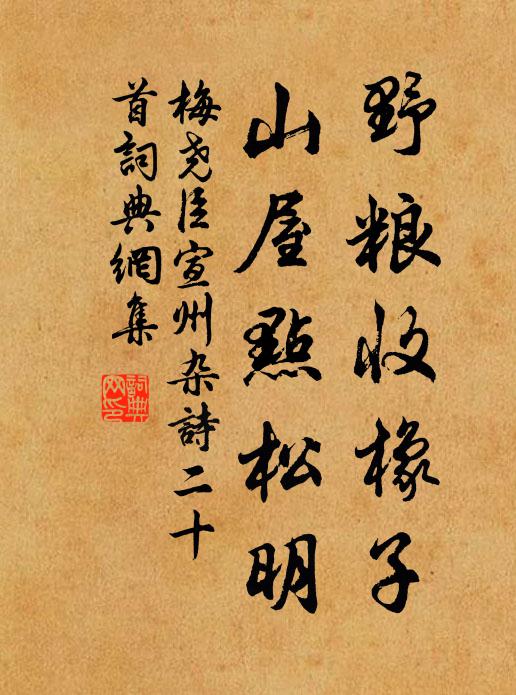 野粮收橡子
山屋點松明
梅尧臣宣州杂詩二十
首詞典網集
詞典
网印